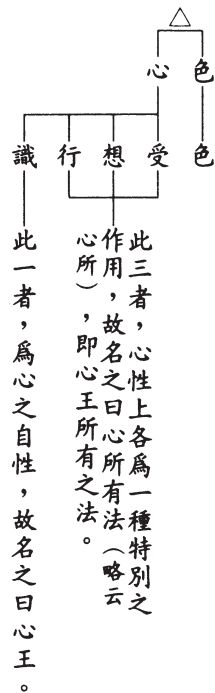 △
色
心
色
受
想
行
識
此三者，心性上各爲一種特別之
作用，故名之曰心所有法（略云
心所），即心王所有之法。
此一者，爲心之自性，故名之曰心王。